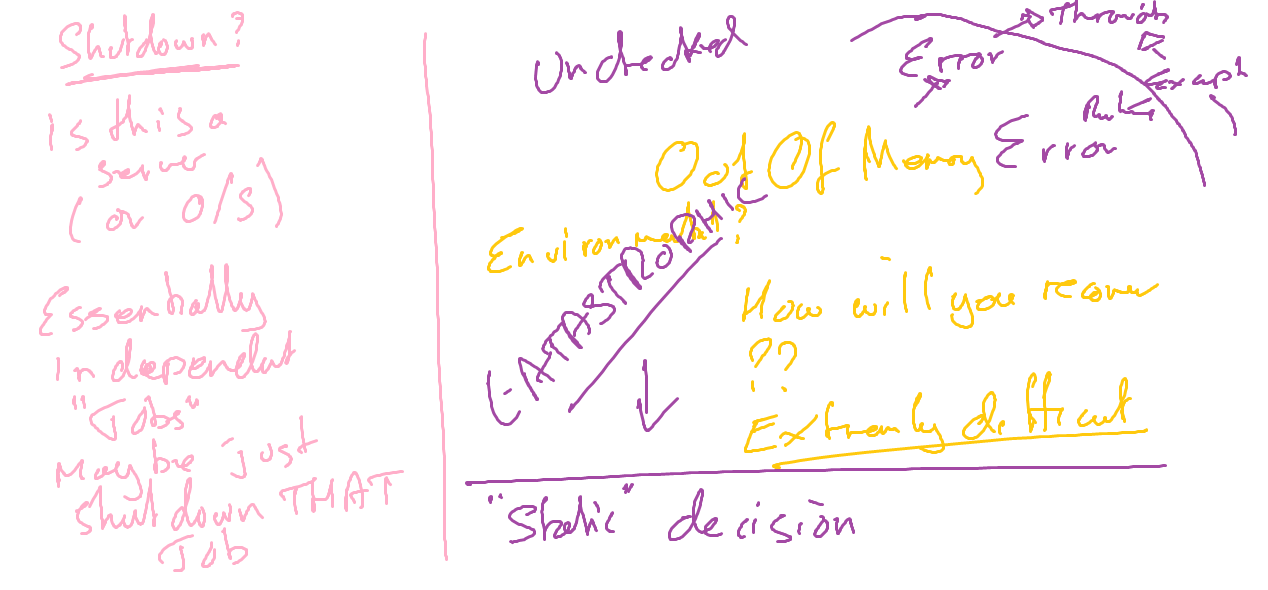 Shutdown?
Is this a
server
(or O/S)
Essentially
Independent
"Jobs"
Maybe just
shut down THAT
Job
Unchecked
Error
Out Of Memory Error
Environment?
CATASTROPHIC
How will you recover
??
Extremly difficut
"Static" decision